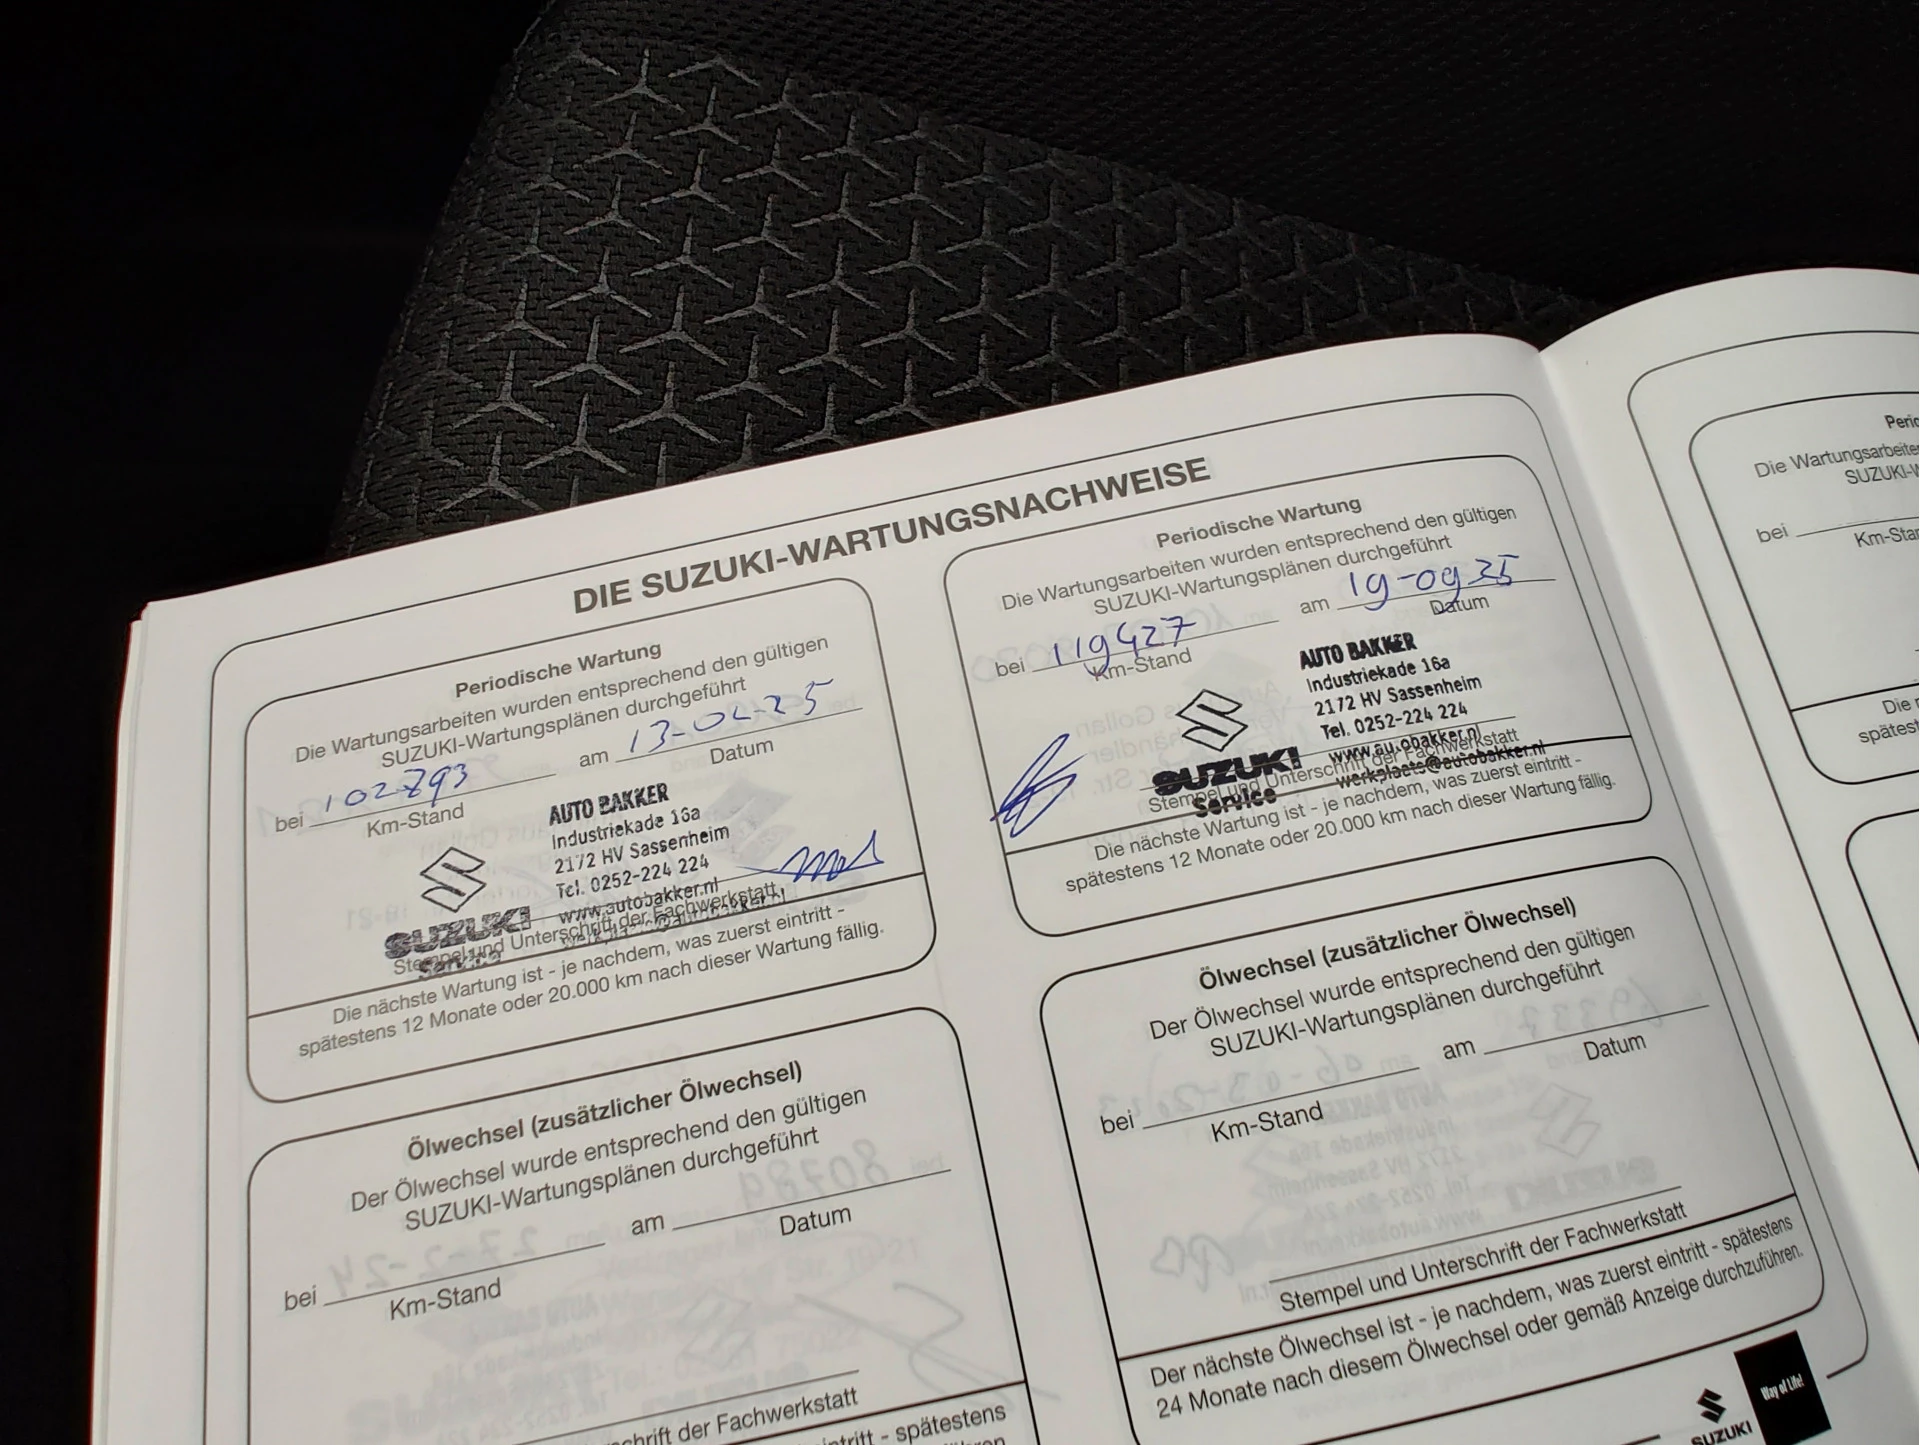 DIE SUZUKI-WARTUNGSNACHWEISE
Periodische Wartung
Die Wartungsarbeiten wurden entsprechend den gültigen
SUZUKI-Wartungsplänen durchgeführt
bei 102893 am 13-02-25
Km-Stand Datum
AUTO BAKKER
Industriekade 16a
2172 HV Sassenheim
Tel. 0252-224 224
www.autobakker.nl
werkplaats@autobakker.nl
SUZUKI
Service
Stempel und Unterschrift der Fachwerkstatt
Die nächste Wartung ist - je nachdem, was zuerst eintritt -
spätestens 12 Monate oder 20.000 km nach dieser Wartung fällig.
Ölwechsel (zusätzlicher Ölwechsel)
Der Ölwechsel wurde entsprechend den gültigen
SUZUKI-Wartungsplänen durchgeführt
bei am
Km-Stand Datum
der Fachwerkstatt
- spätestens
Periodische Wartung
Die Wartungsarbeiten wurden entsprechend den gültigen
SUZUKI-Wartungsplänen durchgeführt
bei 119427 am 19-09
Km-Stand Datum
AUTO BAKKER
Industriekade 16a
2172 HV Sassenheim
Tel. 0252-224 224
www.autobakker.nl
werkplaats@autobakker.nl
SUZUKI
Service
Stempel und Unterschrift der Fachwerkstatt
Die nächste Wartung ist - je nachdem, was zuerst eintritt -
spätestens 12 Monate oder 20.000 km nach dieser Wartung fällig.
Ölwechsel (zusätzlicher Ölwechsel)
Der Ölwechsel wurde entsprechend den gültigen
SUZUKI-Wartungsplänen durchgeführt
bei am
Km-Stand Datum
Stempel und Unterschrift der Fachwerkstatt
Der nächste Ölwechsel ist - je nachdem, was zuerst eintritt - spätestens
24 Monate nach diesem Ölwechsel oder gemäß Anzeige durchzuführen.
SUZUKI
Way of Life!
Die Wartungsarbeiten
bei